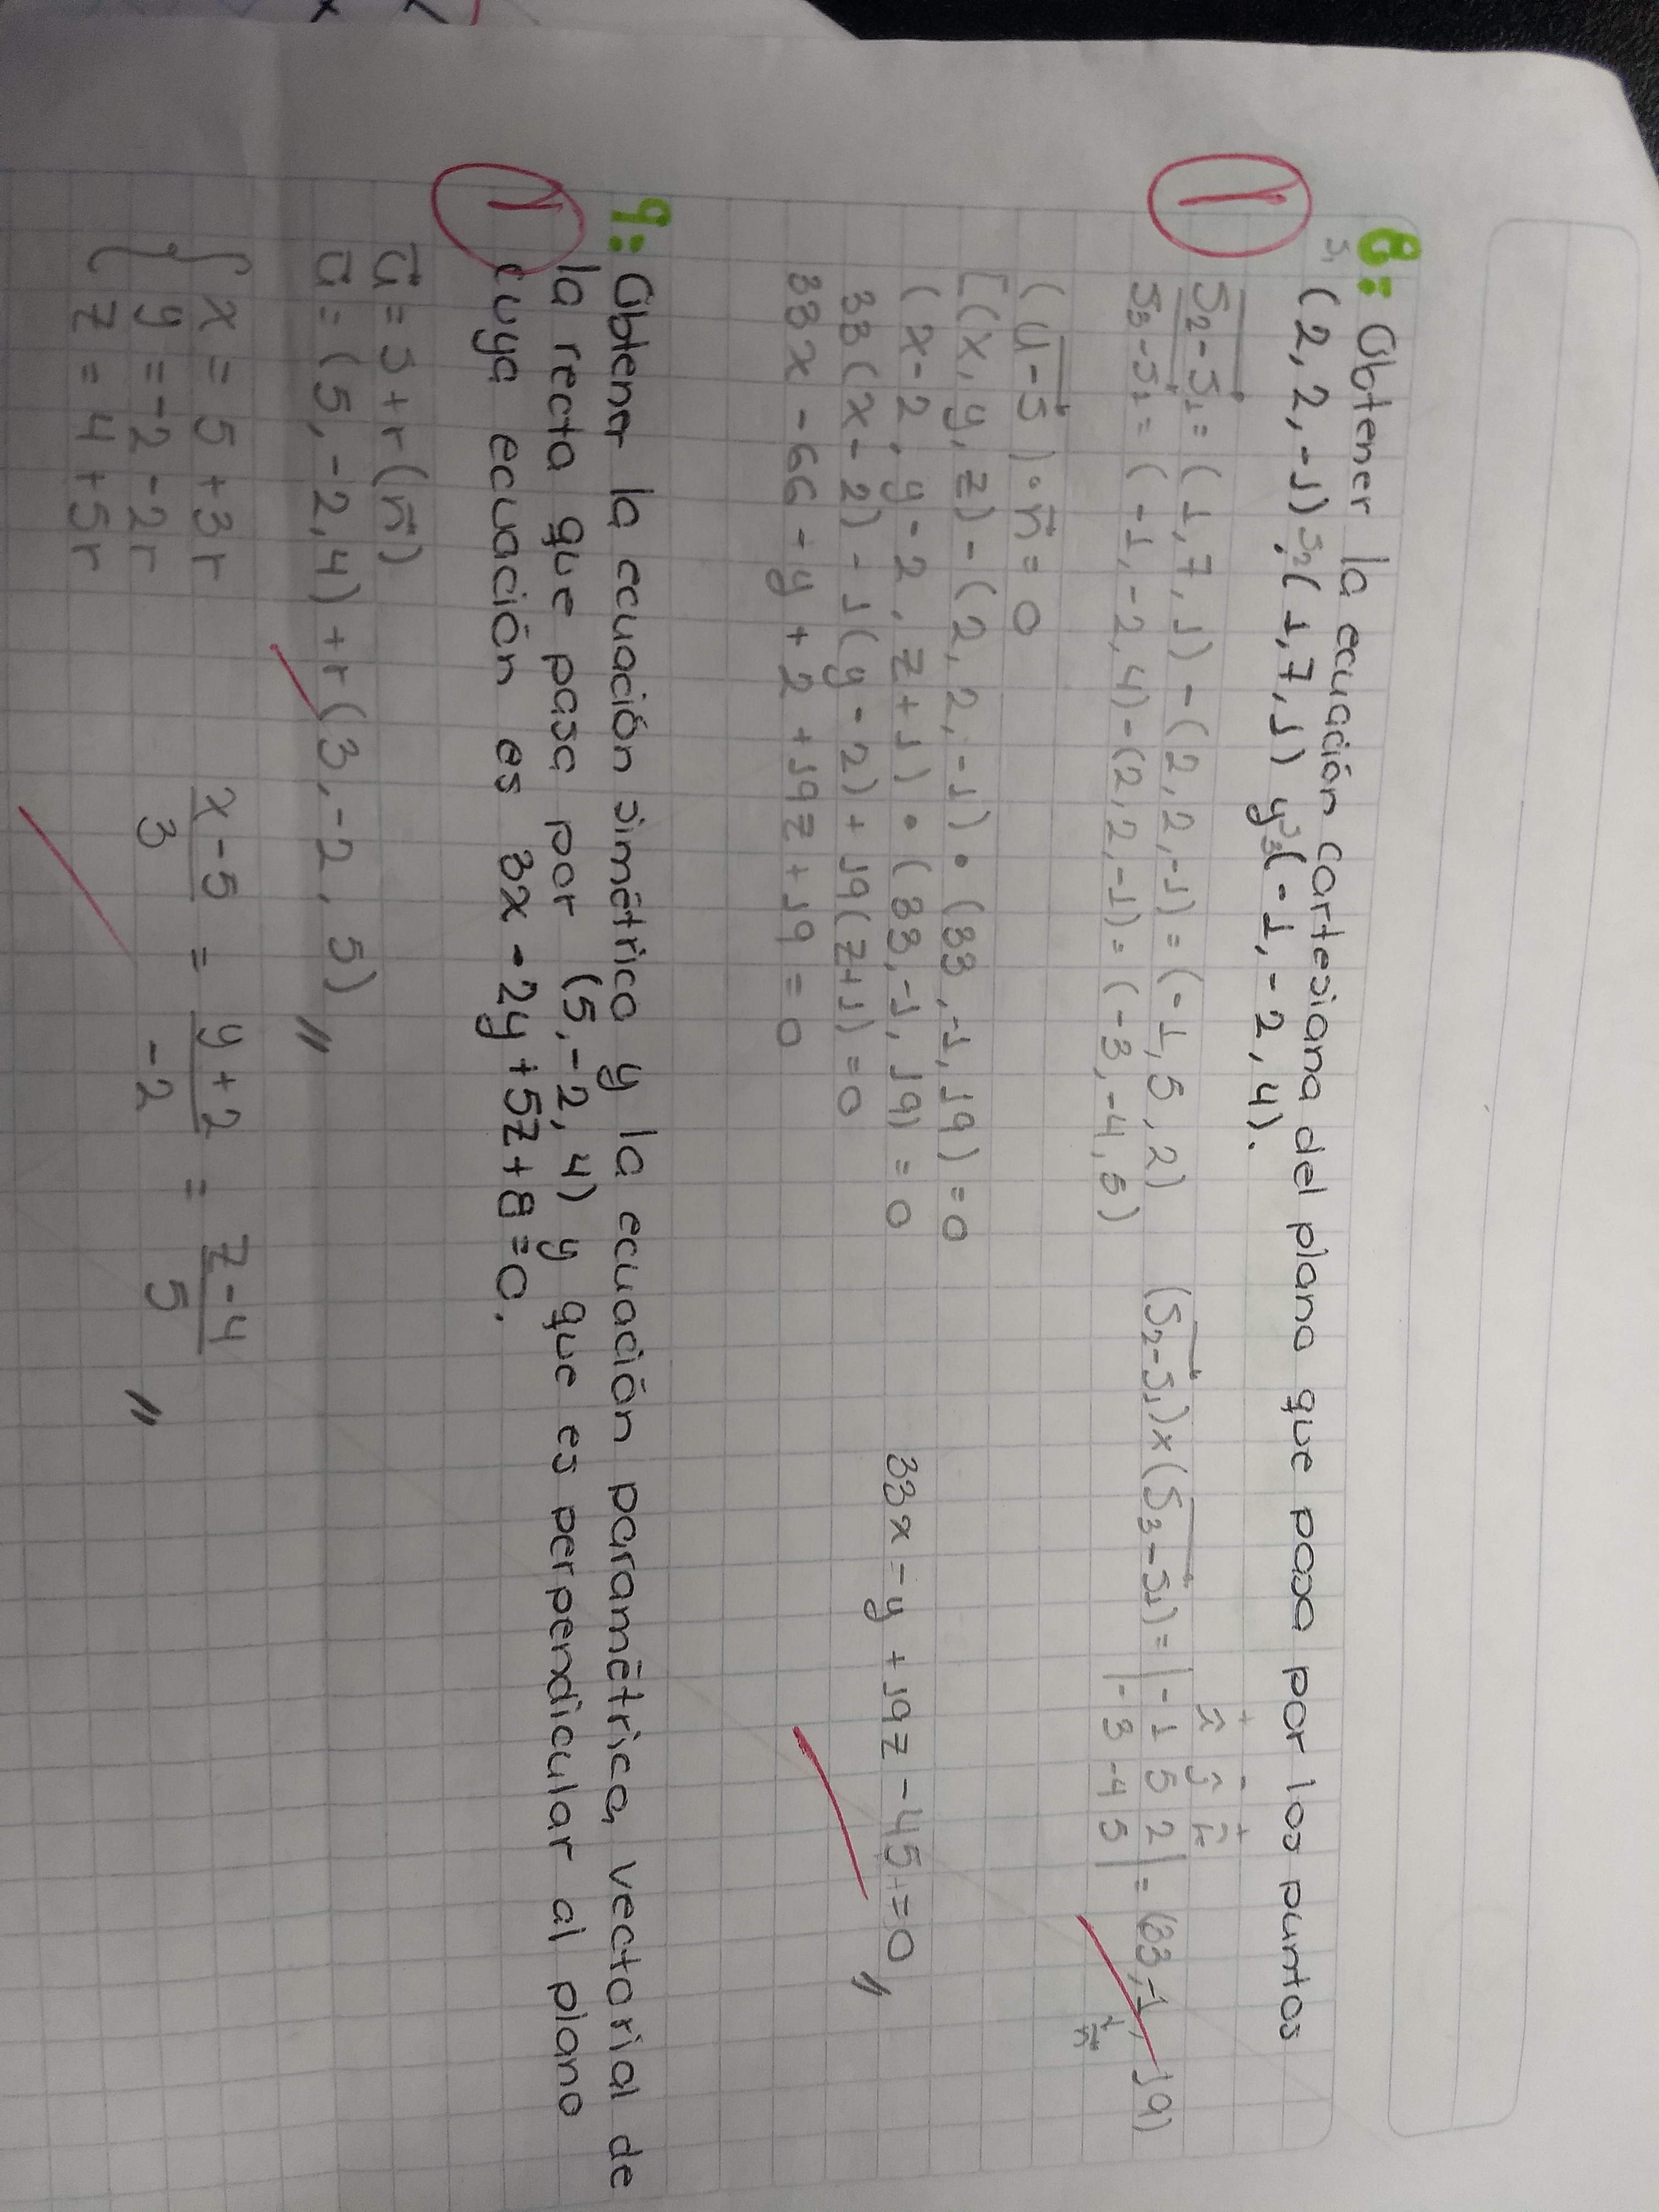 8: Obtener la ecuación cartesiana del plano que pasa por los puntos
S₁ (2, 2, -1) S₂ , (1, 7, 1) y S₃ (-1, -2, 4).
1
S₂-S₁ = (1, 7, 1) - (2, 2, -1) = (-1, 5, 2)
S₃-S₁ = (-1, -2, 4) - (2, 2, -1) = (-3, -4, 5)
+ - +
î ĵ k̂
(S₂-S₁)×(S₃-S₁) = | -1 5 2 | = (33, -1, 19)
| -3 -4 5 |
n
(u-s)·n = 0
[(x, y, z) - (2, 2, -1) · (33, -1, 19) = 0
(x-2, y-2, z+1) · (33, -1, 19) = 0
33(x-2) - 1(y-2) + 19(z+1) = 0
33x - 66 - y + 2 + 19z + 19 = 0
33x - y + 19z - 45 = 0 //
9: Obtener la ecuación simétrica y la ecuación paramétrica vectorial de
la recta que pasa por (5, -2, 4) y que es perpendicular al plano
cuya ecuación es 3x - 2y + 5z + 8 = 0.
1
u = s + r(n)
u = (5, -2, 4) + r(3, -2, 5) //
{ x = 5 + 3r
y = -2 - 2r
z = 4 + 5r
x-5/3 = y+2/-2 = z-4/5 //